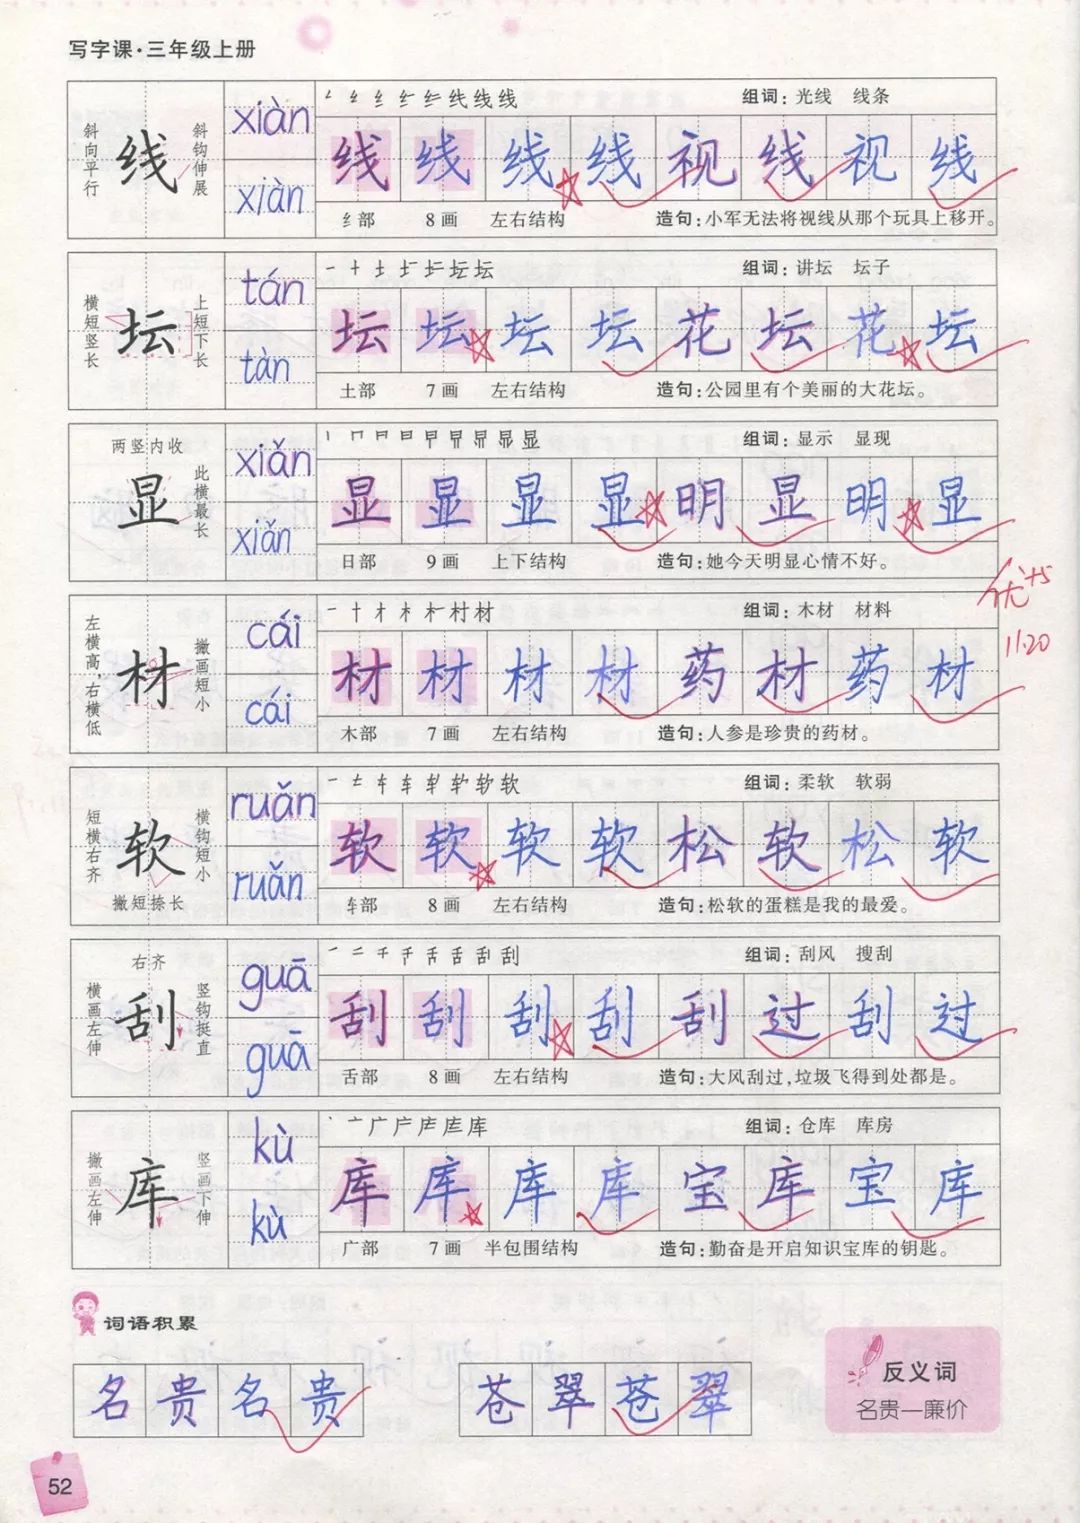 写字课·三年级上册
斜向平行 线 斜钩伸展
xiàn
xiàn
组词：光线 线条
线 线 线 线 视 线 视 线
纟部 8画 左右结构 造句：小军无法将视线从那个玩具上移开。
横短竖长 坛 上短下长
tán
tàn
一 十 土 圹 圹 坛 坛 组词：讲坛 坛子
坛 坛 坛 坛 花 坛 花 坛
土部 7画 左右结构 造句：公园里有个美丽的大花坛。
两竖内收
显 此横最长
xiǎn
xiǎn
组词：显示 显现
显 显 显 显 明 显 明 显
日部 9画 上下结构 造句：她今天明显心情不好。
优+5
11.20
左横高，右横低 材 撇画短小
cái
cái
一 十 才 木 村 材 组词：木材 材料
材 材 材 材 药 材 药 材
木部 7画 左右结构 造句：人参是珍贵的药材。
短横右齐 软 横钩短小
撇短捺长
ruǎn
ruǎn
组词：柔软 软弱
软 软 软 软 松 软 松 软
车部 8画 左右结构 造句：松软的蛋糕是我的最爱。
右齐
横画左伸 刮 竖钩挺直
guā
guā
一 二 千 千 舌 舌 刮 刮 组词：刮风 搜刮
刮 刮 刮 刮 刮 过 刮 过
舌部 8画 左右结构 造句：大风刮过，垃圾飞得到处都是。
撇画左伸 库 竖画下伸
kù
kù
组词：仓库 库房
库 库 库 库 宝 库 宝 库
广部 7画 半包围结构 造句：勤奋是开启知识宝库的钥匙。
词语积累
名 贵 名 贵 苍 翠 苍 翠
反义词
名贵—廉价
52